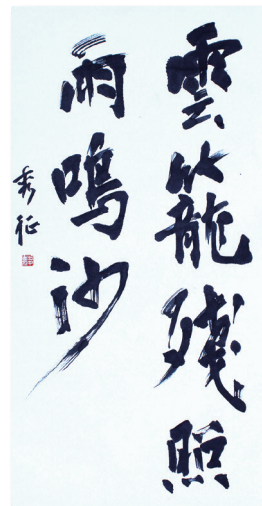 雲籠殘照
雨鳴沙
秀征